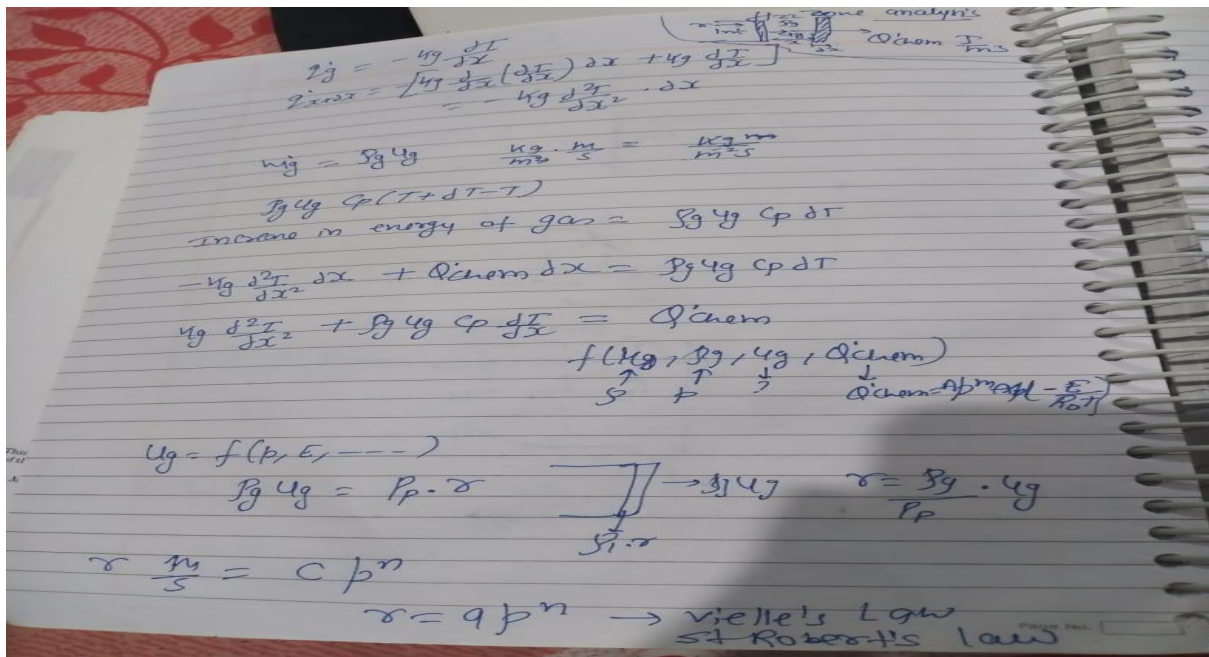 zone analysis
Q̇chem J/m3
q̇g = -Kg dT/dx
q̇x+dx = -[Kg d/dx (dT/dx) dx + Kg dT/dx]
= -Kg d²T/dx² . dx
ṁg = ρg ug kg/m3 . m/s = kg m/m²s
ρg ug Cp (T + dT - T)
Increase in energy of gas = ρg ug Cp dT
-Kg d²T/dx² dx + Q̇chem dx = ρg ug Cp dT
Kg d²T/dx² + ρg ug Cp dT/dx = Q̇chem
f(Kg, ρg, ug, Q̇chem)
↑ ↑ ↓ ↓
p ? Q̇chem = Ap^m exp(-E/R0T)
ug = f(p, E, ----)
ρg ug = ρp . r → ρg ug r = ρg/ρp . ug
r m/s = c p^n
r = a p^n → vielle's Law
St Robert's law
Page No.